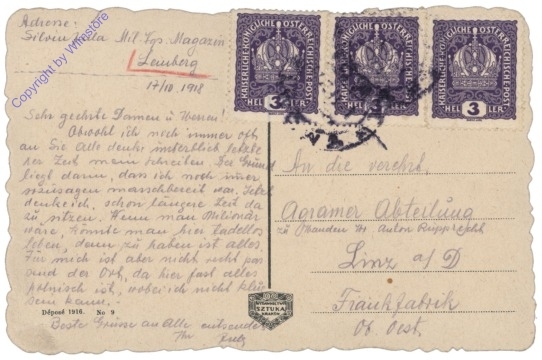 Adresse:
Silvin Mil. Vps. Magazin
Lemberg
17/IV. 1918
Sehr geehrte Damen u Herren!
Obwohl ich noch immer oft
an Sie Alle denke unterblieb letzte
rer Zeit mein schreiben. Der Grund
liegt darin, dass ich noch immer
marschbereit war. Jetzt
denke ich, schon längere Zeit da
zu sitzen. Wenn man Milionär
wäre, könnte man hier tadellos
leben, denn zu haben ist alles.
Für mich ist aber nicht recht pas
send der Ort, da hier fast alles
polnisch ist, wobei ich nicht
kann.
Beste Grüsse an Alle entsendet
Ihr
Déposé 1916. No 9
WYDAWNICTWO
SZTUKA
KRAKÓW
KAISERLICHE KÖNIGLICHE ÖSTERREICHISCHE POST
3
HELLER
KAISERLICHE KÖNIGLICHE ÖSTERREICHISCHE POST
3
HELLER
KAISERLICHE KÖNIGLICHE ÖSTERREICHISCHE POST
3
HELLER
An die verehrl.
Agramer Abteilung
zu Handen Hr. Anton Rupprecht
Linz a/D
Frankfabrik
Ob. Oest.
Copyright by Winstore